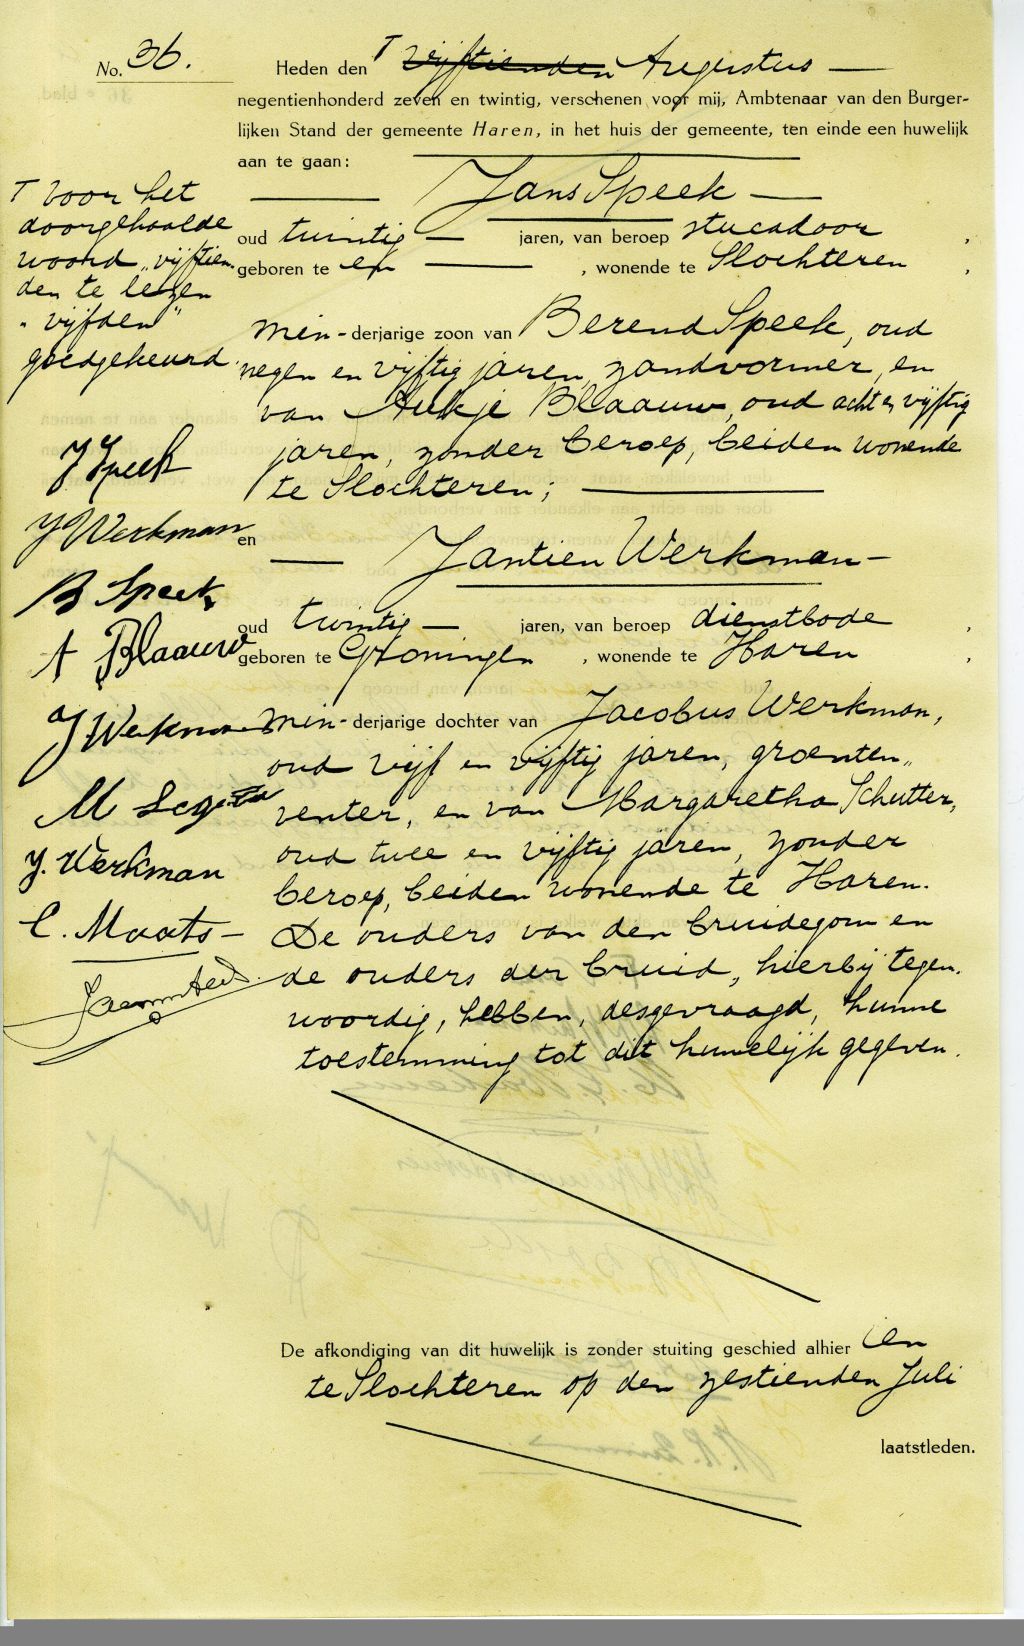 No. 36.
Heden den ⊤ vijftienden Augustus —
negentienhonderd zeven en twintig, verschenen voor mij, Ambtenaar van den Burger-
lijken Stand der gemeente Haren, in het huis der gemeente, ten einde een huwelijk
aan te gaan:
Jans Speek —
oud twintig — jaren, van beroep stucadoor,
geboren te en —, wonende te Slochteren,
min- derjarige zoon van Berend Speek, oud
negen en vijftig jaren, zandvormer, en
van Aukje Blaauw, oud acht en vijftig
jaren, zonder beroep, beiden wonende
te Slochteren; —
en
— Jantien Werkman —
oud twintig — jaren, van beroep dienstbode,
geboren te Groningen, wonende te Haren,
min- derjarige dochter van Jacobus Werkman,
oud vijf en vijftig jaren, groenten„
venter, en van Margaretha Schutter,
oud twee en vijftig jaren, zonder
beroep, beiden wonende te Haren.
De ouders van den bruidegom en
de ouders der bruid, hierbij tegen„
woordig, hebben, desgevraagd, hunne
toestemming tot dit huwelijk gegeven.
De afkondiging van dit huwelijk is zonder stuiting geschied alhier en
te Slochteren op den zestienden Juli
laatstleden.
⊤ voor het
doorgehaalde
woord „vijftien„
den te lezen
„vijfden"
goedgekeurd.
J Speek
J Werkman
B Speek
A Blaauw
J Werkman
M
J. Werkman
C. Maats —